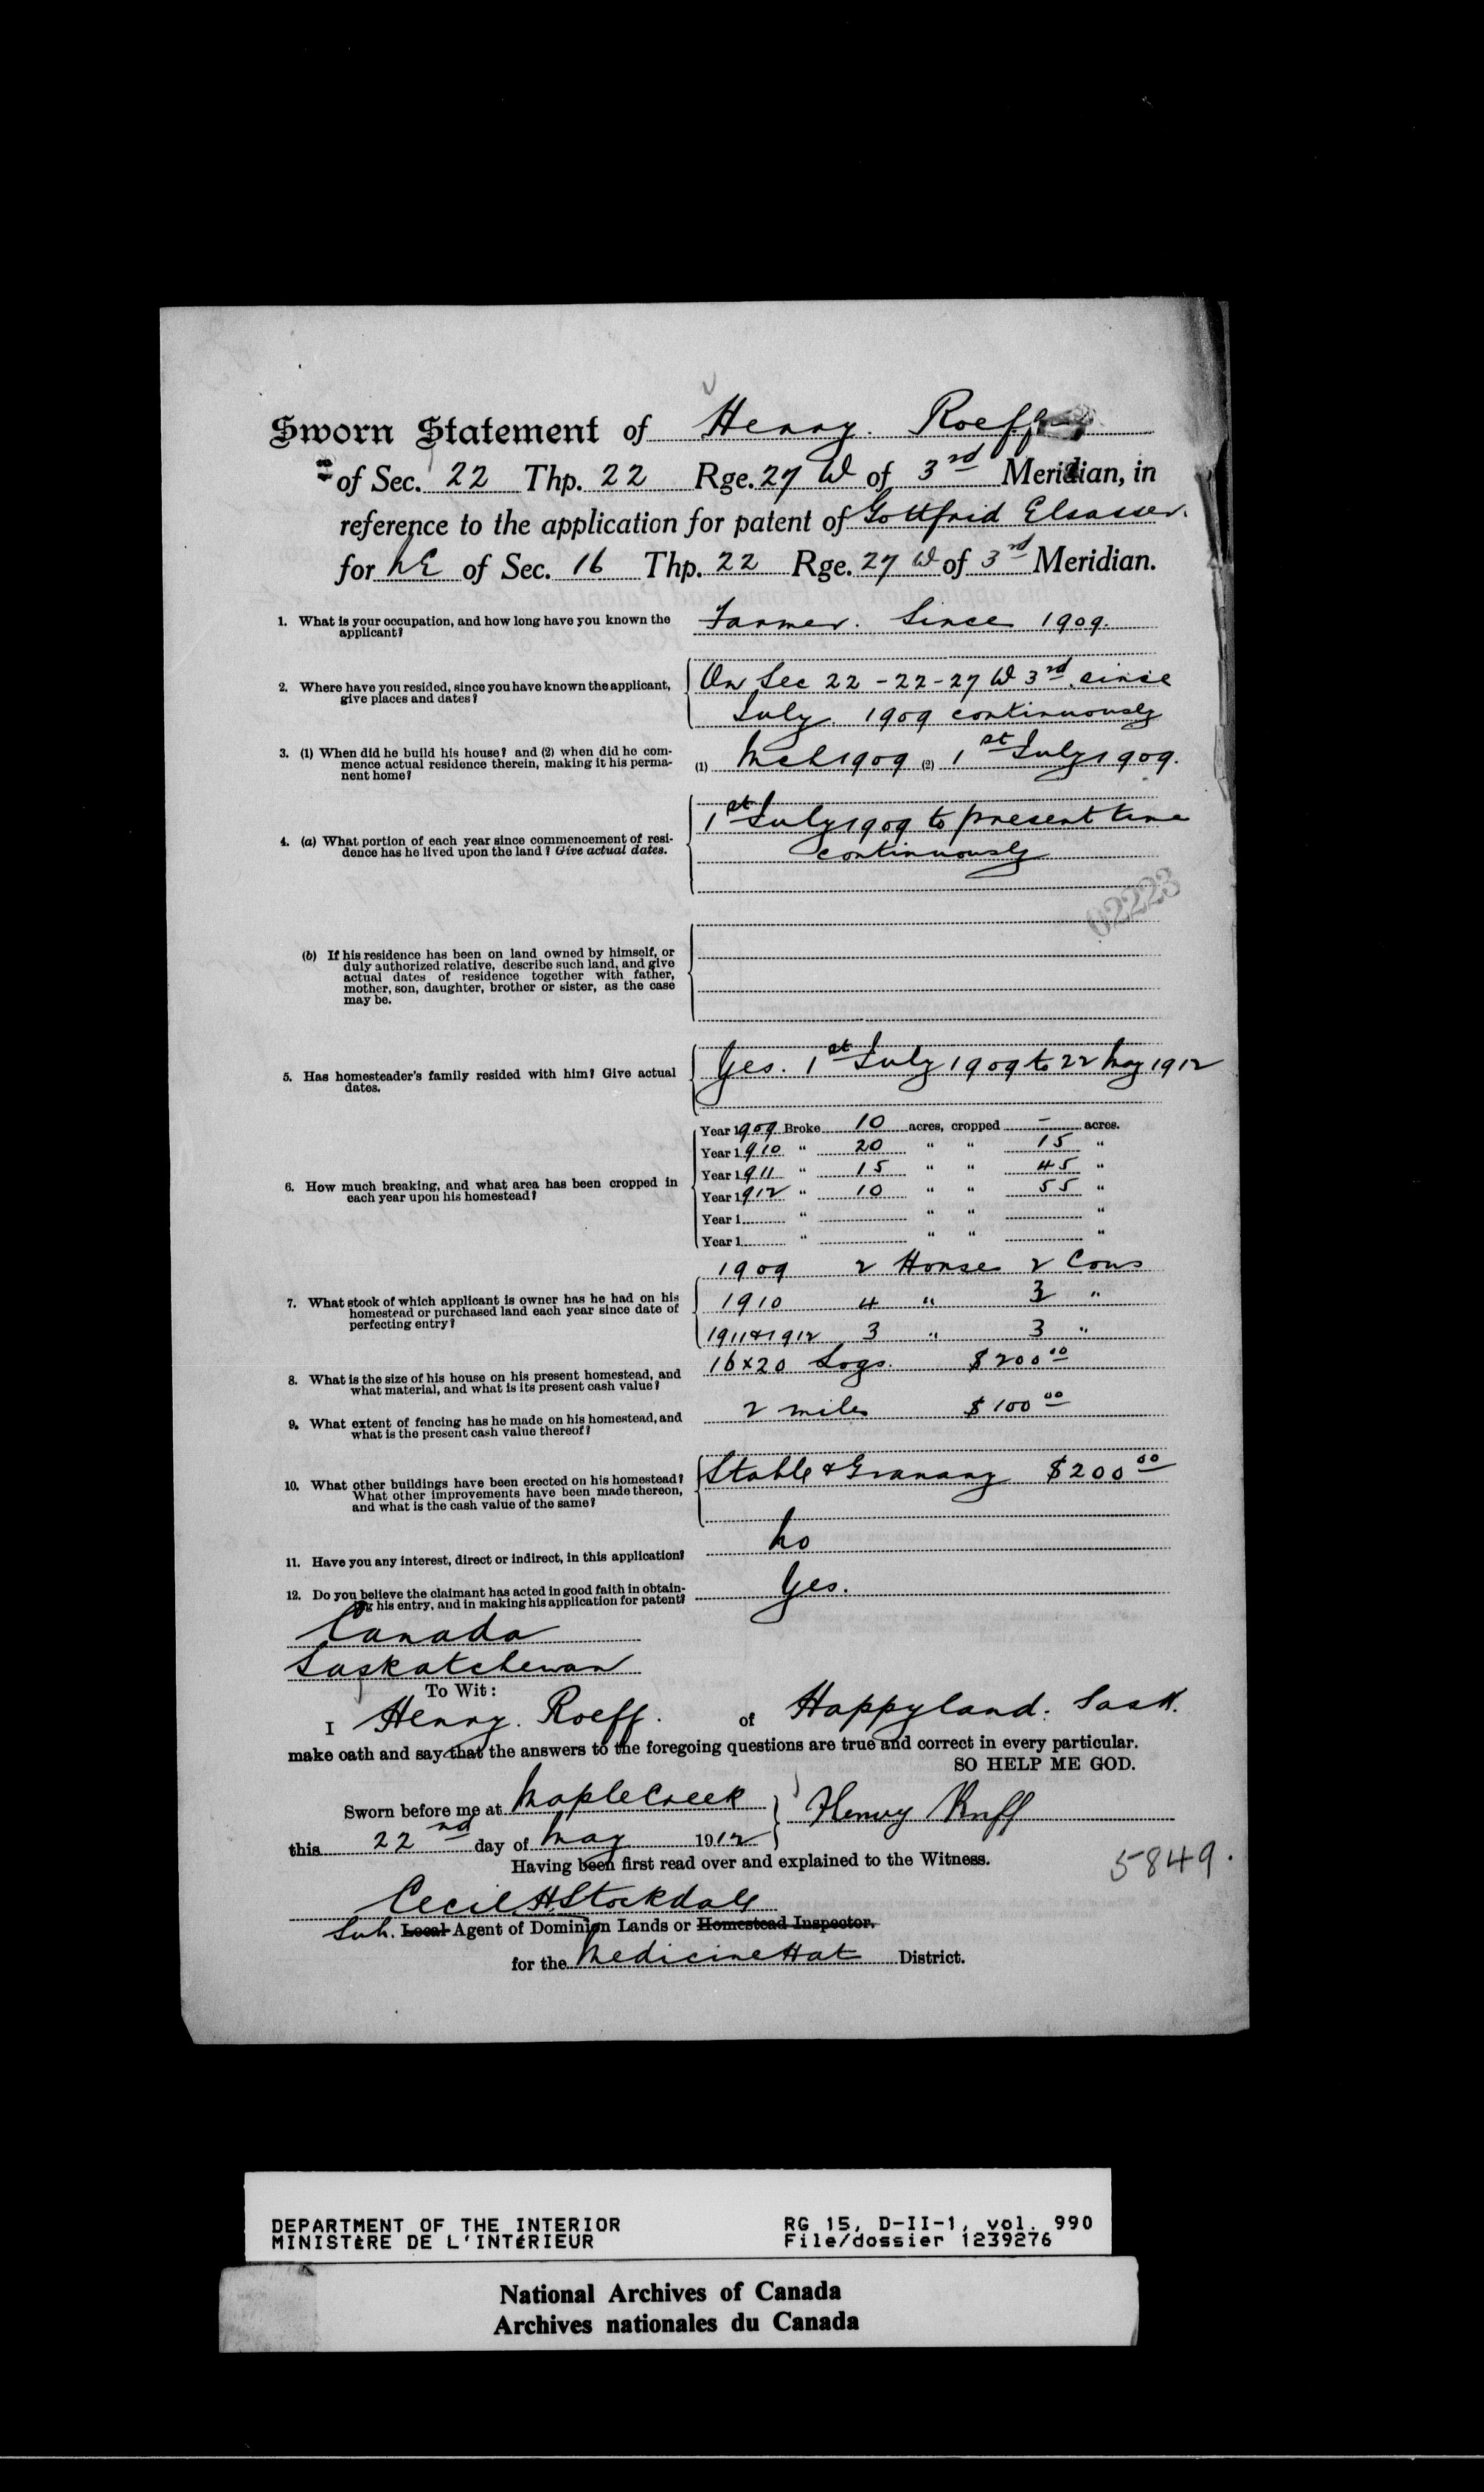 Sworn Statement of Henry. Roeff
of Sec. 22 Thp. 22 Rge. 27 W of 3rd Meridian, in
reference to the application for patent of Gottfrid Elsasser.
for NE of Sec. 16 Thp. 22 Rge. 27 W of 3rd Meridian.
1. What is your occupation, and how long have you known the applicant? Farmer. Since 1909.
2. Where have you resided, since you have known the applicant, give places and dates? On Sec 22-22-27 W 3rd. since
July. 1909 continuously
3. (1) When did he build his house? and (2) when did he com-
mence actual residence therein, making it his perma-
nent home? (1) Mch 1909 (2) 1st July 1909.
4. (a) What portion of each year since commencement of resi-
dence has he lived upon the land? Give actual dates. 1st July 1909 to present time
continuously
02223
(b) If his residence has been on land owned by himself, or
duly authorized relative, describe such land, and give
actual dates of residence together with father,
mother, son, daughter, brother or sister, as the case
may be.
5. Has homesteader's family resided with him? Give actual
dates. Yes. 1st July 1909 to 22 May 1912
6. How much breaking, and what area has been cropped in
each year upon his homestead?
Year 1909 Broke 10 acres, cropped - acres.
Year 1910 " 20 " " 15 "
Year 1911 " 15 " " 45 "
Year 1912 " 10 " " 55 "
Year 1 " " " "
Year 1 " " " "
7. What stock of which applicant is owner has he had on his
homestead or purchased land each year since date of
perfecting entry?
1909 2 Horses 2 Cows
1910 4 " 3 "
1911 & 1912 3 " 3 "
8. What is the size of his house on his present homestead, and
what material, and what is its present cash value? 16x20 Logs. $200 00
9. What extent of fencing has he made on his homestead, and
what is the present cash value thereof? 2 miles $100 00
10. What other buildings have been erected on his homestead?
What other improvements have been made thereon,
and what is the cash value of the same? Stable & Granary $200 00
11. Have you any interest, direct or indirect, in this application? No
12. Do you believe the claimant has acted in good faith in obtain-
ing his entry, and in making his application for patent? Yes.
Canada
Saskatchewan
To Wit:
I Henry. Roeff. of Happyland. Sask.
make oath and say that the answers to the foregoing questions are true and correct in every particular.
SO HELP ME GOD.
Sworn before me at Maple Creek
Henry Ruff
this 22nd day of May 1912
Having been first read over and explained to the Witness.
5849.
Cecil H Stockdale
Sub. Local Agent of Dominion Lands or Homestead Inspector.
for the Medicine Hat District.
DEPARTMENT OF THE INTERIOR
MINISTÈRE DE L'INTÉRIEUR
RG 15, D-II-1, vol. 990
File/dossier 1239276
National Archives of Canada
Archives nationales du Canada